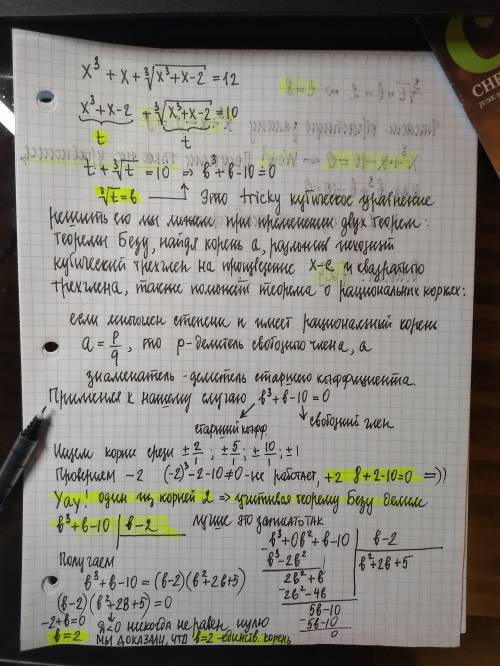 x³ + x + ∛(x³+x-2) = 12
x³+x-2 + ∛(x³+x-2) = 10
t t
t + ∛t = 10 ⇒ в³+в-10=0
∛t = в Это tricky кубическое уравнение
решить его мы можем при применении двух теорем:
теоремы Безу, найдя корень a, разложив исходный
кубический трехчлен на произведение x-a и квадратного
трехчлена, также поможет теорема о рациональных корнях:
если многочлен степени n имеет рациональный корень
a = p/q, то p-делитель свободного члена, а
знаменатель - делитель старшего коэффициента.
Применяя к нашему случаю в³+в-10=0
старший коэфф. свободный член
Ищем корни среди ±2/1; ±5/1; ±10/1; ±1
Проверяем -2 (-2)³-2-10≠0-не работает, +2 8+2-10=0 =))
Yay! один из корней 2 ⇒ учитывая теорему Безу делим
в³+в-10 | в-2 лучше это записать так
Получаем
в³+в-10=(в-2)(в²+2в+5)
(в-2)(в²+2в+5)=0
-2+в=0 Д<0 никогда не равен нулю
в=2 мы доказали, что в=2-единств. корень
в³+0в²+в-10 | в-2
в³-2в² | в²+2в+5
2в²+в
2в²-4в
5в-10
5в-10
0
∛t = в = 2 ⇒ t = 8
CHE
JUNE